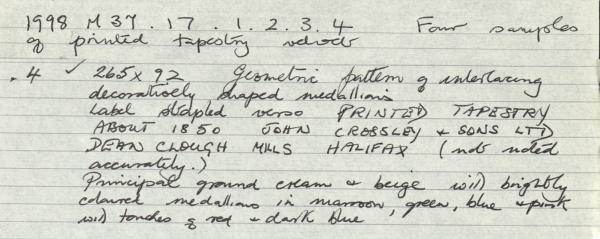 1998 M37.17.1.2.3.4 Four samples
of printed tapestry velvet
.4 ✓ 265 x 92 Geometric pattern of interlacing
decoratively shaped medallions
Label stapled verso PRINTED TAPESTRY
ABOUT 1850 JOHN CROSSLEY & SONS LTD
DEAN CLOUGH MILLS HALIFAX (not noted
accurately.)
Principal ground cream & beige with brightly
coloured medallions in marroon, green, blue & pink
with touches of red & dark blue